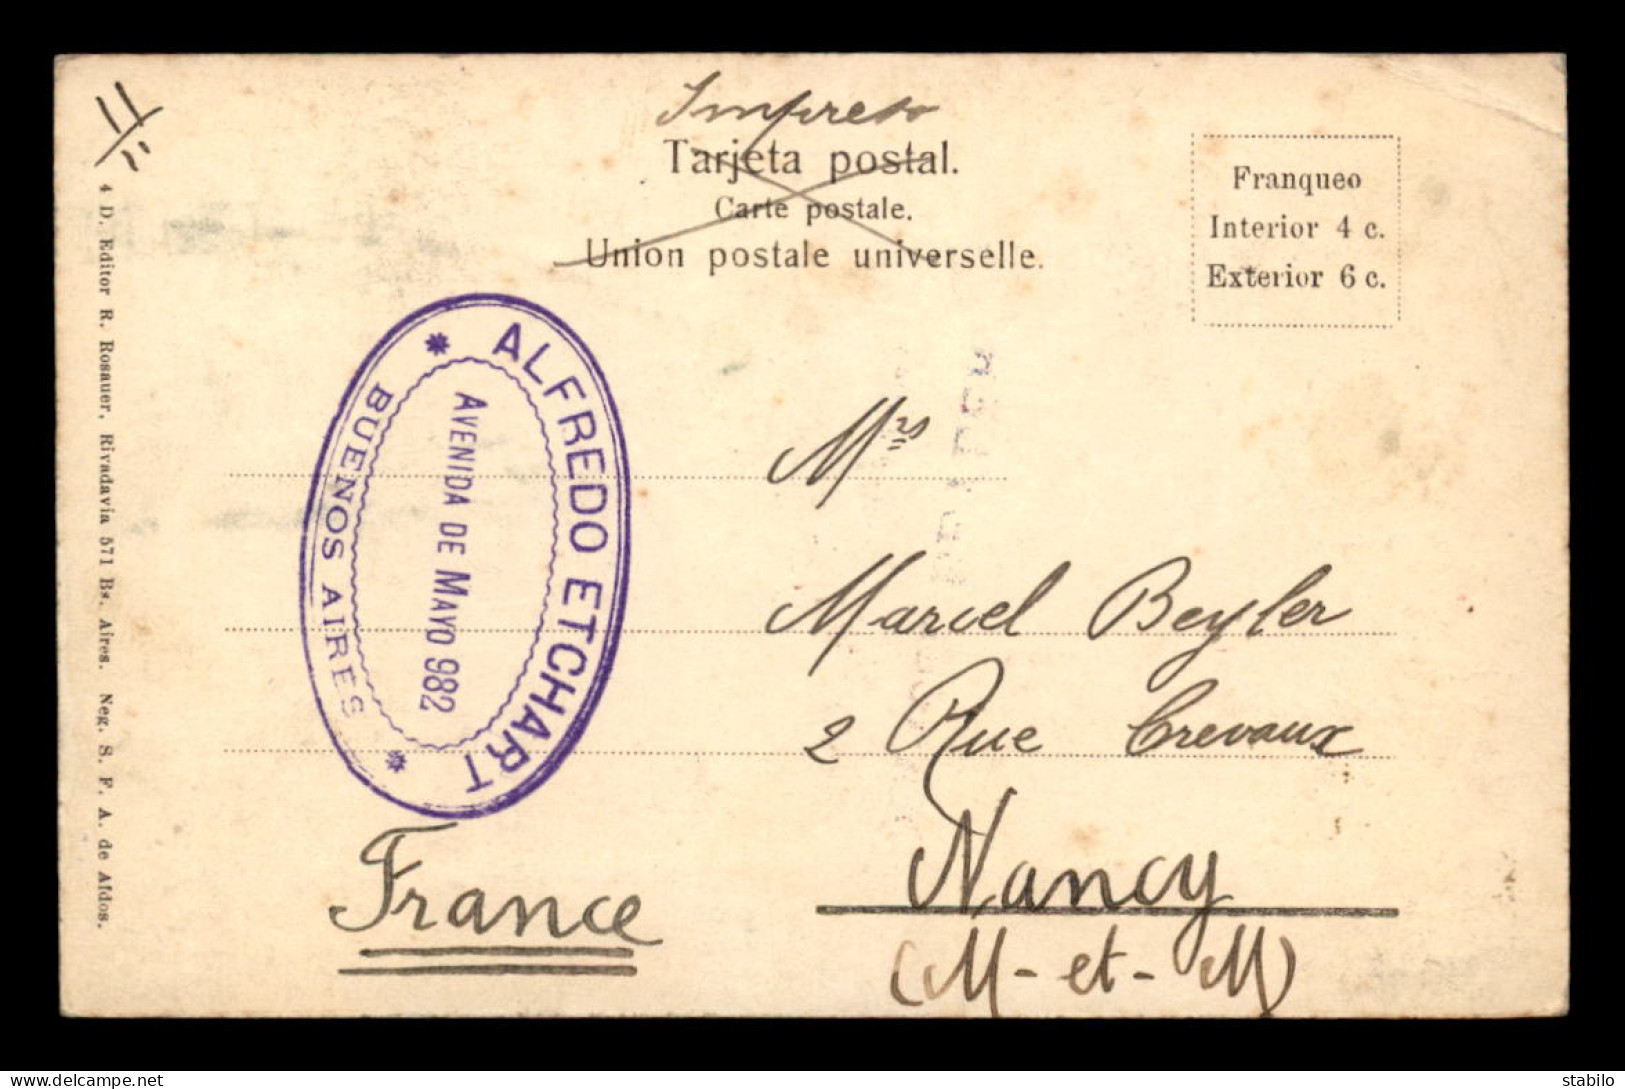 Impreso
Tarjeta postal.
Carte postale.
Union postale universelle.
Franqueo
Interior 4 c.
Exterior 6 c.
4 D. Editor R. Rosauer, Rivadavia 571 Bs. Aires. Neg. S. F. A. de Afdos.
ALFREDO ETCHART
AVENIDA DE MAYO 982
BUENOS AIRES
Mrs
Marcel Beyler
2 Rue Crevaux
Nancy
(M-et-M)
France
delcampe.net
stabilo